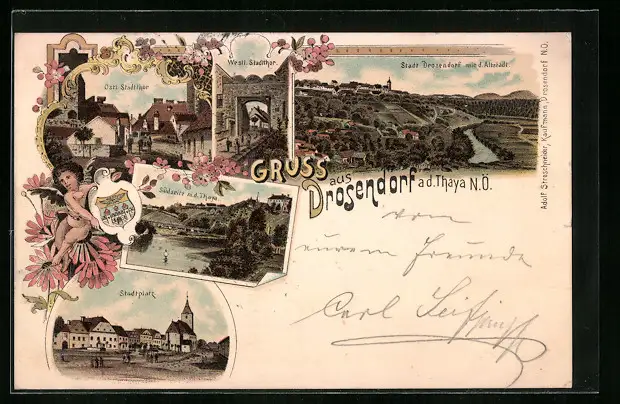 Östl. Stadtthor
Westl. Stadtthor.
Stadt Drosendorf mit d. Altstadt
GRUSS
aus
Drosendorf a d. Thaya N.Ö.
Südseite m. d. Thaya
Stadtplatz
Adolf Straschneider, Kaufmann, Drosendorf N.Ö.
von
eurem Freunde
Carl